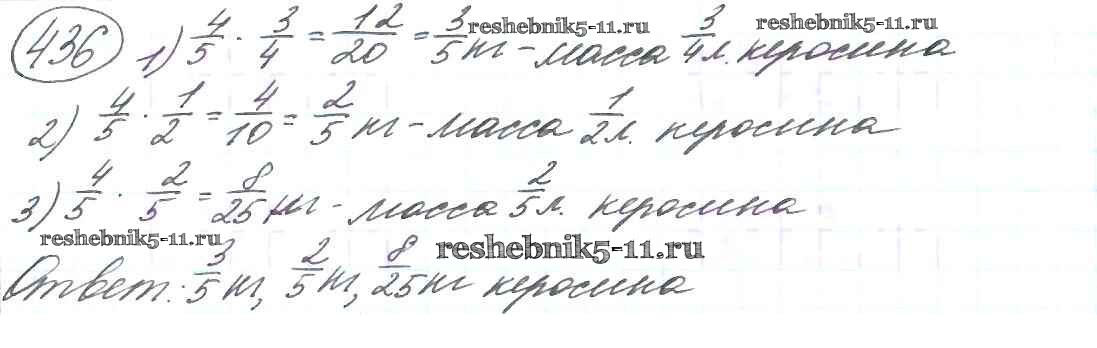 436 1) 4/5 · 3/4 = 12/20 = 3/5 кг – масса 3/4 л. керосина
reshebnik5-11.ru reshebnik5-11.ru
2) 4/5 · 1/2 = 4/10 = 2/5 кг – масса 1/2 л. керосина
3) 4/5 · 2/5 = 8/25 кг – масса 2/5 л. керосина
reshebnik5-11.ru reshebnik5-11.ru
Ответ: 3/5 кг, 2/5 кг, 8/25 кг керосина